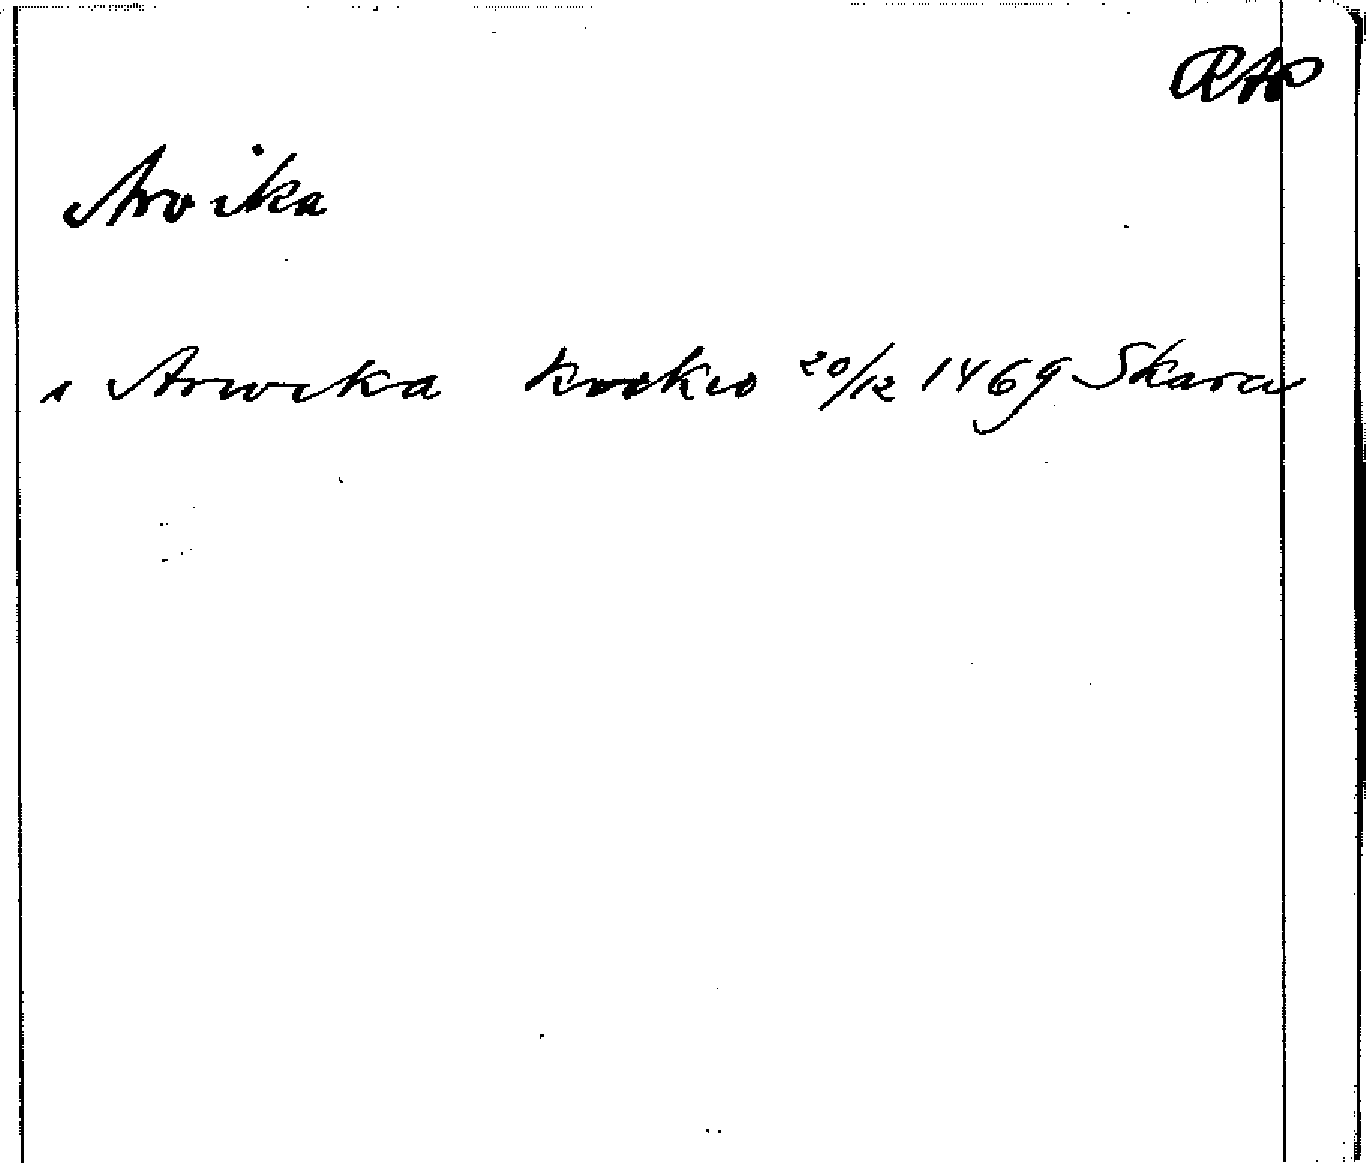 RAP
Arvika
i Arwika kirkio 20/12 1469 Skara